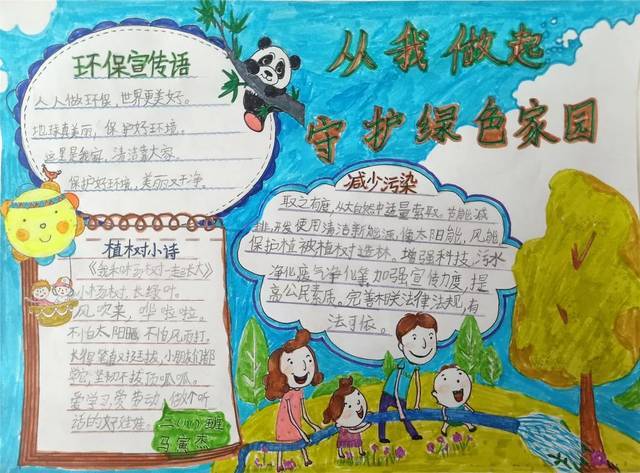 从我做起
守护绿色家园
环保宣传语
人人做环保,世界更美好。
地球真美丽,保护好环境。
这里是我家,清洁靠大家。
保护好环境,美丽又干净。
减少污染
取之有度,从大自然中适量索取。节能减
排,开发使用清洁新能源,像太阳能,风能
保护植被植树造林。增强科技,污水
净化废气净化等加强宣传力度,提
高公民素质。完善相关法律法规,有
法可依。
植树小诗
《我和小杨树一起成长》
小杨树,长绿叶。
风吹来,哗啦啦。
不怕太阳晒,不怕风雨打。
长得笔直又挺拔,小朋友们都
学它,坚韧不拔顶呱呱。
爱学习爱劳动,做个听
话的好娃娃。
班
马寅杰